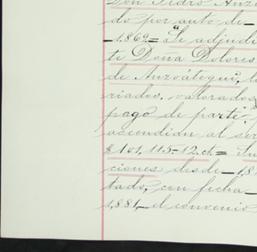 Don Pedro Anzo
do por auto de
1869= "Se adjudi
te Doña Dolores
de Anzoátegui, la
riados, valorados
pago de parte
ascendión al ser
$161,115-12 ct= In
ciones desde 18
tado, con fecha
1881, el convenio